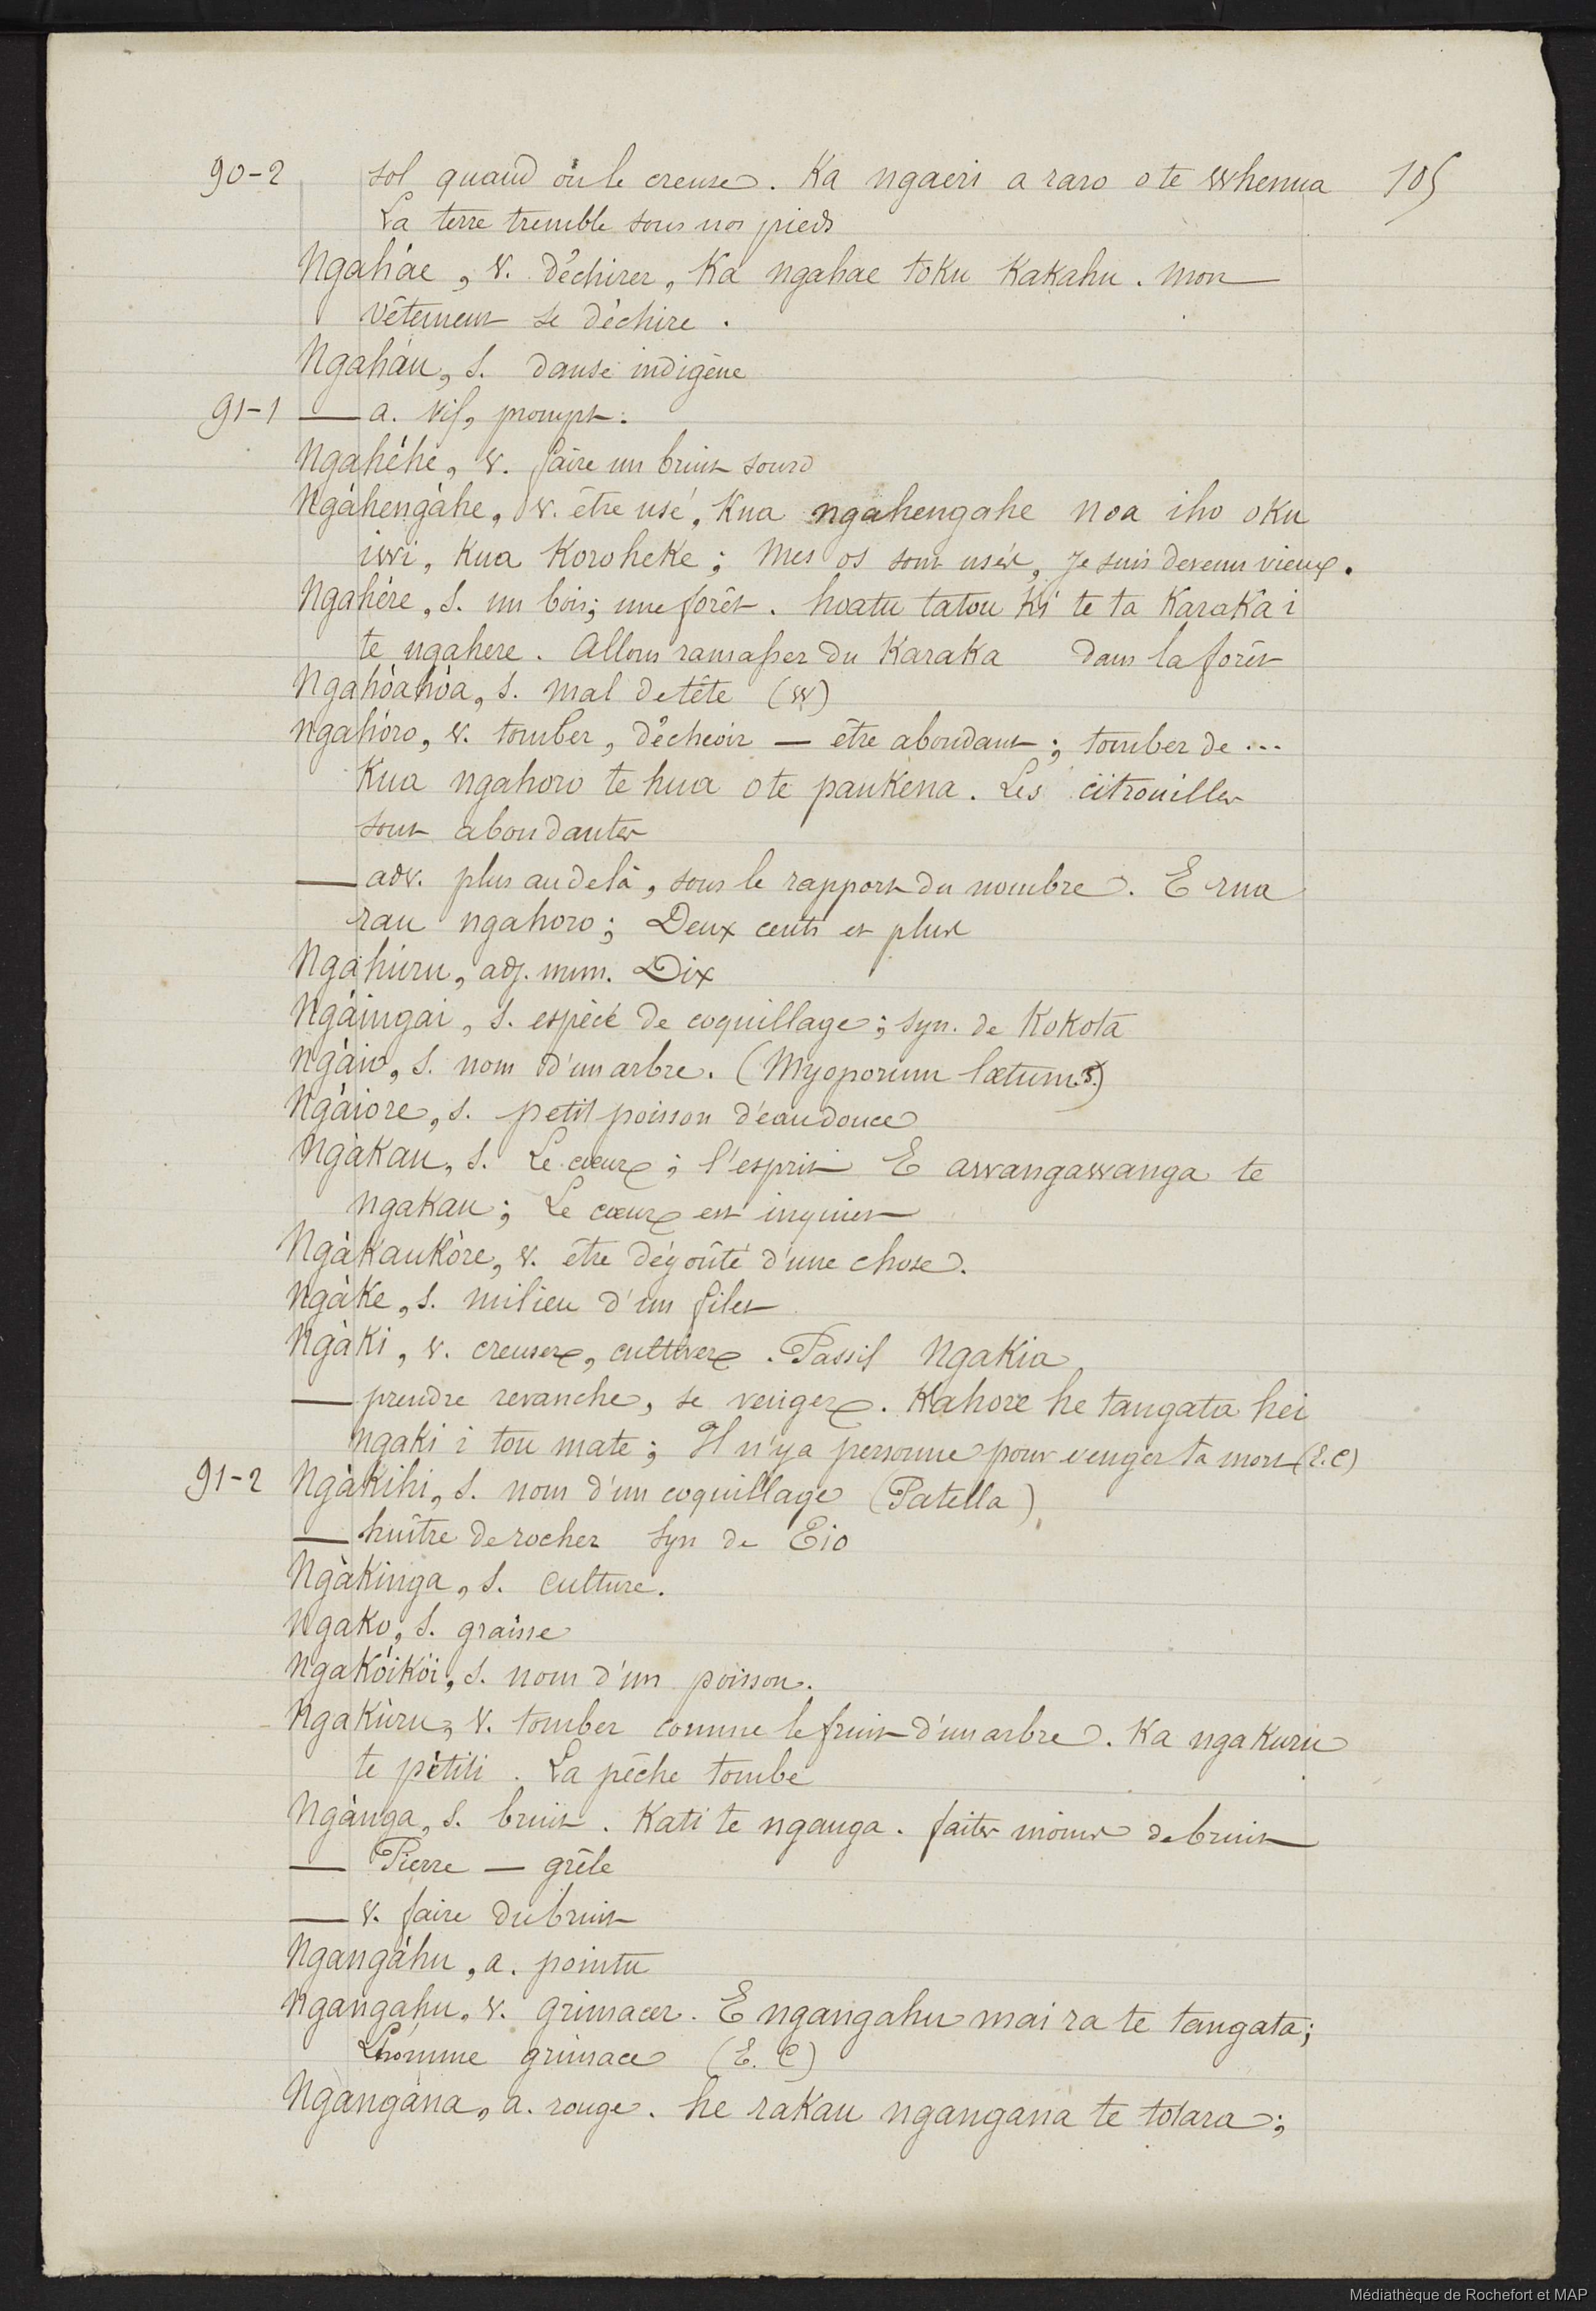 90-2 sol quand on le creuse. Ka ngaeri a raro o te whenua 105
La terre tremble sous nos pieds
Ngahàe, v. déchirer, Ka ngahae toku Kakahu. Mon
vêtement se déchire.
Ngahàu, s. danse indigène
91-1 — a. vif, prompt.
Ngahéhé, v. faire un bruit sourd
Ngàhengàhe, v. être usé, Kua ngahengahe noa iho oku
iwi, Kua Koroheke; Mes os sont usés, Je suis devenu vieux.
Ngahére, s. un bois; une forêt. hoatu tatou ki te ta Karaka i
te ngahere. Allons ramasser du Karaka dans la forêt
Ngahóahóa, s. mal de tête (w)
Ngahóro, v. tomber, déchoir — être abondant; tomber de ...
Kua ngahoro te hua o te paukena. Les citrouilles
sont abondantes
— adv. plus au delà, sous le rapport du nombre. E rua
rau ngahoro; Deux cents et plus
Ngahúru, adj. num. Dix
Ngàingai, s. espèce de coquillage; syn. de Kokota
Ngàio, s. nom d'un arbre. (Myoporum lætum.)
Ngàiore, s. petit poisson d'eau douce
Ngàkau, s. Le cœur; l'esprit E awangawanga te
ngakau; Le cœur est inquiet
Ngàkaukòre, v. être dégoûté d'une chose.
Ngàke, s. milieu d'un filet
Ngàki, v. creuser, cultiver. Passif Ngakia
— prendre revanche, se venger. Kahore he tangata hei
ngaki i tou mate; Il n'y a personne pour venger ta mort (E.C)
91-2 Ngàkihi, s. nom d'un coquillage (Patella)
— huître de rocher syn de Tio
Ngàkinga, s. culture.
Ngako, s. graisse
Ngakóikói, s. nom d'un poisson.
Ngakùru, v. tomber comme le fruit d'un arbre. Ka ngakuru
te pititi. La pêche tombe
Ngànga, s. bruit. Kati te nganga. faites moins de bruit
— Pierre — grêle
— v. faire du bruit
Ngangàhu, a. pointu
Ngangahu, v. grimacer. E ngangahu mai ra te tangata;
L'homme grimace (E. C)
Ngàngàna, a. rouge. he rakau ngangana te totara;
Médiathèque de Rochefort et MAP